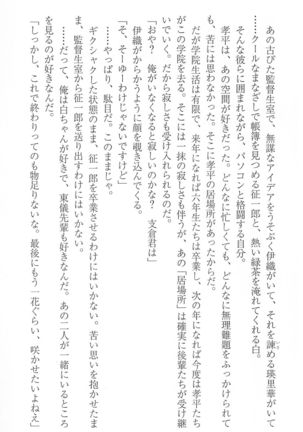 あの古びた監督生室で、無謀なアイデアをうそぶく伊織がいて、それを諫める瑛里華がいて
――クールなまなざしで帳簿を見つめる征一郎と、熱い緑茶を淹れてくれる白。
そんな彼らに囲まれながら、パソコンと格闘する自分。
孝平は、あの空間が好きだった。どんなに忙しくても、どんなに無理難題をふっかけられて
も、苦には思わなかった。そこに孝平の居場所があったからだ。
だが学院生活は有限で、来年になれば六年生たちは卒業し、次の年になれば今度は孝平たち
がこの学院を去る。そこには一抹の寂しさも伴うが、あの「居場所」は確実に後輩たちが受け継
いでいく。だから寂しさも受け入れられるのだ。
「おや？　俺がいなくなると寂しいのかな？　支倉君は」
伊織がからかうように顔を覗き込んでくる。
「そ、そーゆーわけじゃないですけど」
――やっぱり、駄目だ。このままじゃ。
ギクシャクした状態のまま、征一郎を卒業させるわけにはいかない。苦い思いを抱かせたま
ま、監督生室から征一郎を送り出すわけにはいかない。
……だって、俺は白ちゃんが好きで、東儀先輩も好きなんだ。あの二人が一緒にいるところ
を見るのが好きなんだ。
「しっかし、これで終わりってのも物足りないな。最後にもう一花ぐらい、咲かせたいよねえ」